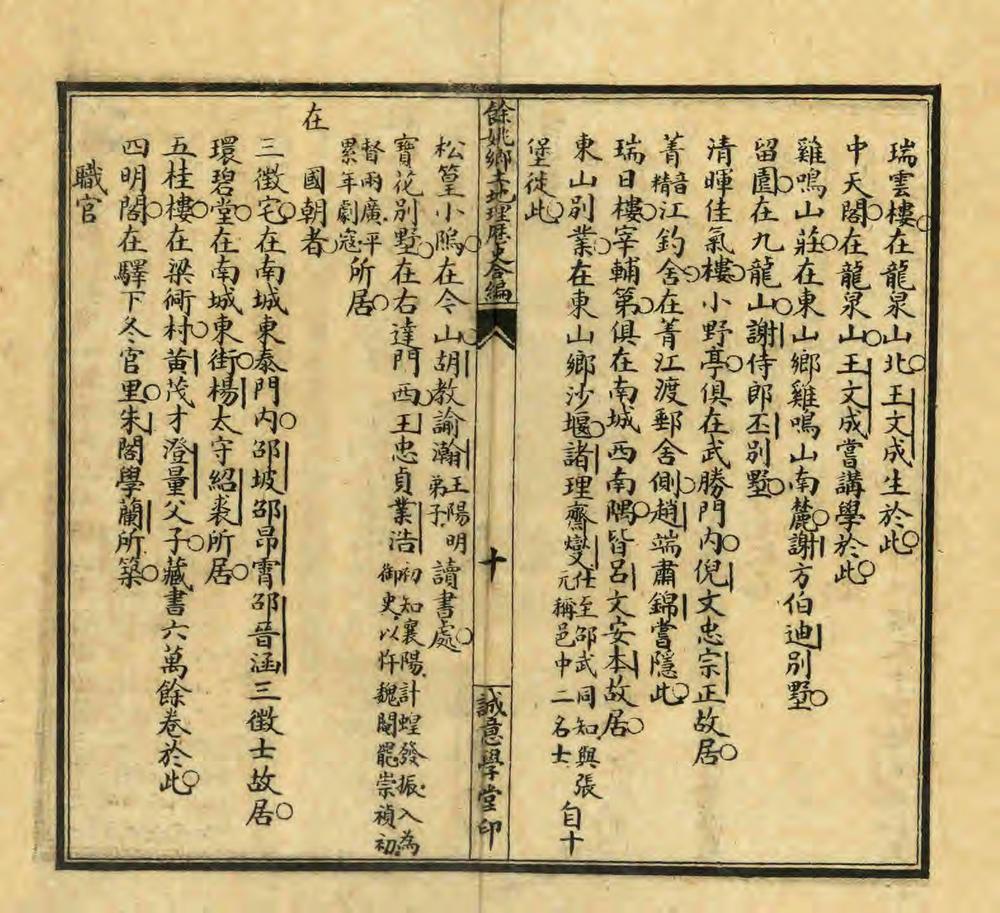 瑞雲樓在龍泉山北王文成生於此
中天閣在龍泉山王文成嘗講學於此
雞鳴山莊在東山鄉雞鳴山南麓謝方伯迪別墅
留園在九龍山謝侍郎丕別墅
清暉佳氣樓小野亭俱在武勝門內倪文忠宗正故居
菁音精江釣舍在菁江渡郵舍側趙端肅錦嘗隱此
瑞日樓宰輔第俱在南城西南隅皆呂文安本故居
東山別業在東山鄉沙堰諸理齋燮仕至邵武同知與張元稱邑中二名士自十
堡徙此
餘姚鄉土地理歷史合編
十
誠意學堂印
松篁小隖在令山胡教諭瀚王陽明弟子讀書處
寶花別墅在右達門西王忠貞業浩初知襄陽計蝗發振入為御史以忤魏閹罷崇禎初
督兩廣平累年劇寇所居
在 國朝者
三徵宅在南城東泰門內邵坡邵昂霄邵晉涵三徵士故居
環碧堂在南城東街楊太守紹裘所居
五桂樓在梁衖村黃茂才澄量父子藏書六萬餘卷於此
四明閣在驛下冬官里朱閣學蘭所築
職官